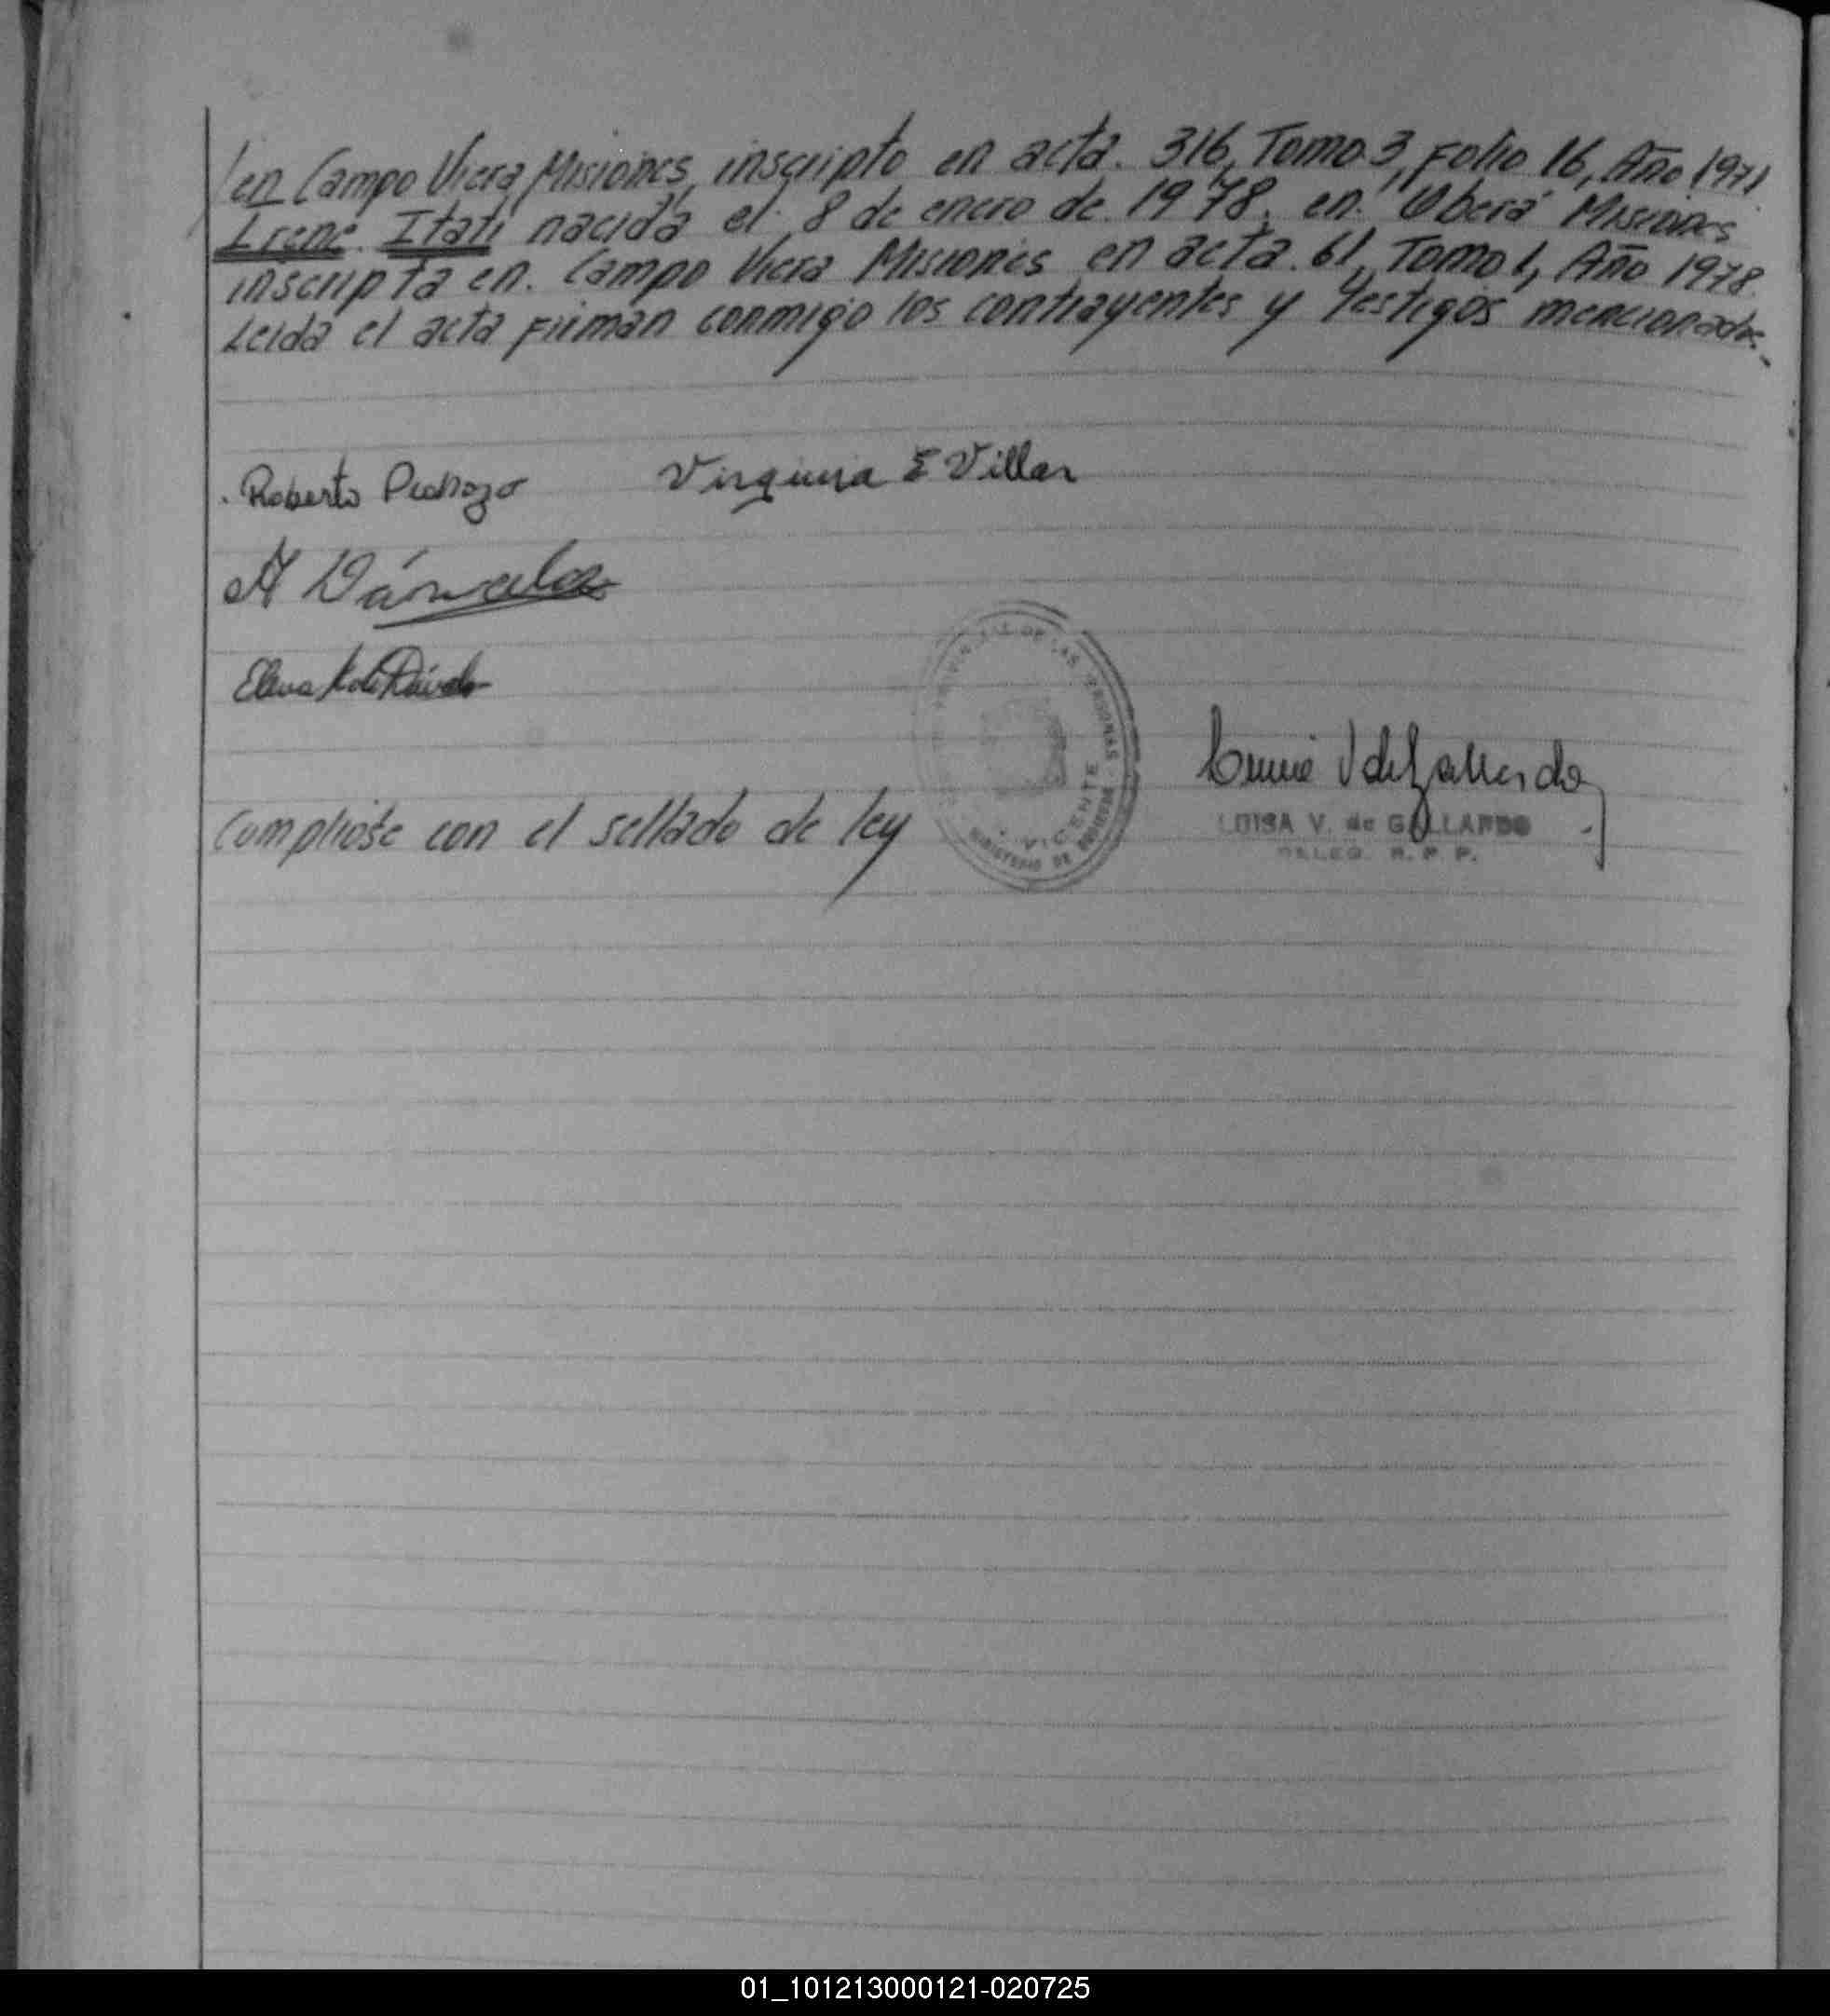 /en Campo Viera Misiones, inscripto en acta. 316, Tomo 3, Folio 16, Año 1971
Irene. Itatí nacida el 8 de enero de 1978. en Oberá Misiones
inscripta en. Campo Viera Misiones en acta. 61, Tomo 1, Año 1978
Leida el acta firman conmigo los contrayentes y Testigos mencionados.-
Roberto Pedrozo Virginia E Villar
A
Elena K de
DE LAS PERSONAS
VICENTE
MINISTERIO DE
V de Gallardo
LUISA V. de GALLARDO
DELEG. R. P. P.
Cumpliose con el sellado de ley
01_101213000121-020725